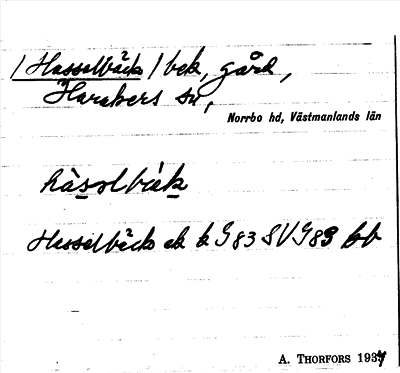 / Hasselbäck / bek, gård,
Harakers sn,
Norrbo hd, Västmanlands län
hàsolbäk
Hasselbäck ek k G 83 SV G 89 bb
A. Thorfors 1937